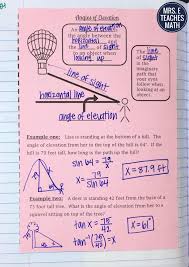 MRS. E
TEACHES
MATH
Angles of Elevation
An angle of elevation is
the angle between the
horizontal and
the line of sight
to an object when
looking up.
The line
of sight
is the
imaginary
path that
your eyes
follow when
looking at an
object.
line of sight
horizontal line
angle of elevation
Example one: Lize is standing at the bottom of a hill. The
angle of elevation to the top of the hill is 64°. If the
hill is 79 feet tall, how long is the path up the hill?
79
64
x
sin 64 = 79/x
x = 79/sin 64
x = 87.9 ft
Example two: A deer is standing 42 feet from the base of a
75 foot tall tree. What is the angle of elevation from deer to a
squirrel sitting on top of the tree?
75
42
tan x = 75/42
tan⁻¹(75/42) = x
x = 61°